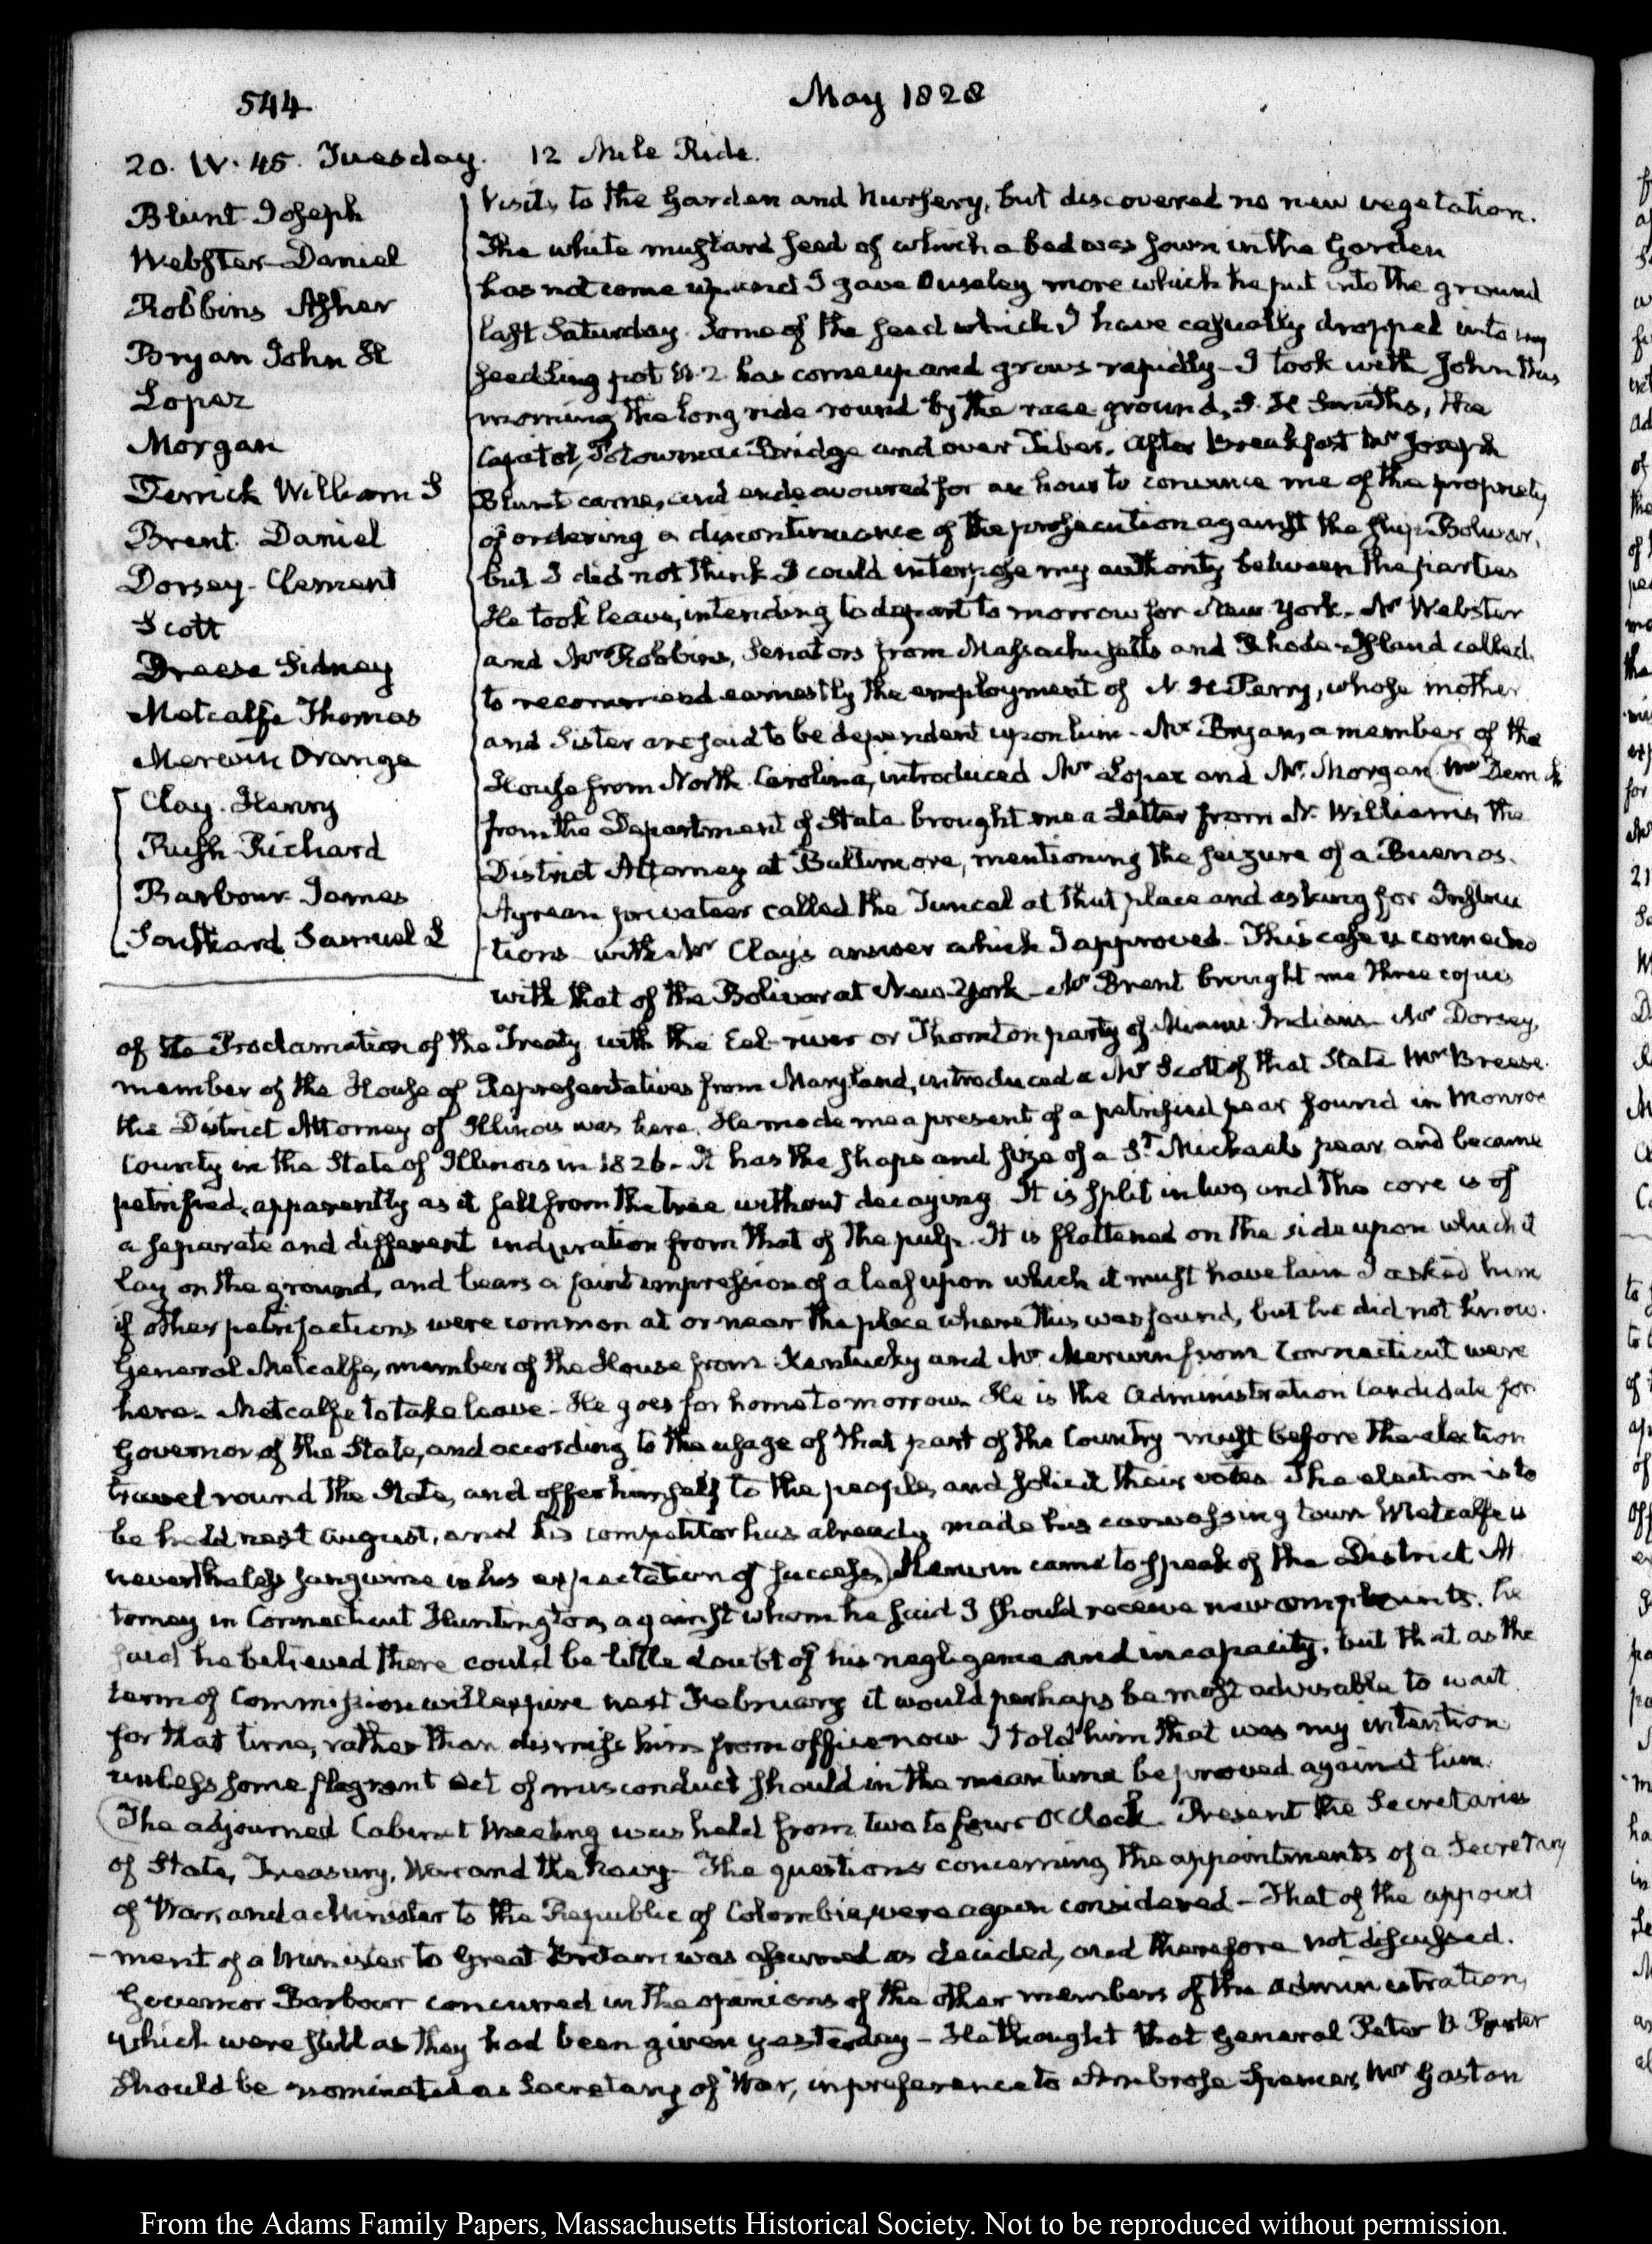 544
May 1828
20. IV. 45. Tuesday. 12 Mile Ride.
Blunt Joseph
Webster Daniel
Robbins Asher
Bryan John H
Lopez
Morgan
Derrick William S
Brent. Daniel
Dorsey. Clement
Scott
Breese Sidney
Metcalfe Thomas
Merwin Orange
Clay. Henry
Rush Richard
Barbour James
Southard Samuel L
Visits to the Garden and Nursery, but discovered no new vegetation.
The white mustard seed of which a bed was sown in the Garden
has not come up, and I gave Ouseley more which he put into the ground
last Saturday. Some of the seed which I have casually dropped into my
seedling pot N. 2 has come up and grows rapidly – I took with John this
morning the long ride round by the race ground, S. H Smiths, the
Capitol, Potowmac Bridge and over Tiber. After breakfast Mr Joseph
Blunt came, and endeavoured for an hour to convince me of the propriety
of ordering a discontinuance of the prosecution against the ship Bolivar,
but I did not think I could interpose my authority between the parties
He took leave, intending to depart to morrow for New York. Mr Webster
and Mr Robbins, Senators from Massachusetts and Rhode-Island called
to recommend earnestly the employment of N. H Perry, whose mother
and Sister are said to be dependent upon him – Mr Bryan, a member of the
House from North Carolina, introduced Mr Lopez and Mr. Morgan (Mr Derrick
from the Department of State brought me a Letter from N. Williams, the
District Attorney at Baltimore, mentioning the seizure of a Buenos.
Ayrean privateer called the Juncal at that place and asking for Instruc
tions with Mr Clay's answer which I approved – This case is connected
with that of the Bolivar at New-York – Mr Brent brought me three copies
of the Proclamation of the Treaty with the Eel-river or Thornton party of Miami Indians Mr Dorsey,
member of the House of Representatives from Maryland, introduced a Mr Scott of that State Mr Breese
the District Attorney of Illinois was here. He made me a present of a petrified pear found in Monroe
County in the State of Illinois in 1826 – It has the shape and size of a St Michaels pear, and became
petrified, apparently as it fell from the tree without decaying. It is split in two, and the core is of
a separate and different induration from that of the pulp. It is flattened on the side upon which it
lay on the ground, and bears a faint impression of a leaf upon which it must have lain I asked him
if other petrifactions were common at or near the place where this was found, but he did not know.
General Metcalfe, member of the House from Kentucky and Mr Merwin from Connecticut were
here. Metcalfe to take leave – He goes for home to morrow. He is the Administration Candidate for
Governor of the State, and according to the usage of that part of the Country must before the election
travel round the State, and offer himself to the people, and solicit their votes The election is to
be held next August, and his competitor has already made his canvassing tour Metcalfe is
nevertheless sanguine in his expectation of success.) Merwin came to speak of the District At
torney in Connecticut Huntington, against whom he said I should receive new complaints. he
said he believed there could be little doubt of his negligence and incapacity. but that as the
term of Commission will expire next February it would perhaps be most advisable to wait
for that time, rather than dismiss him from office now I told him that was my intention
unless some flagrant act of misconduct should in the mean time be proved against him.
(The adjourned Cabinet Meeting was held from two to four O'Clock. Present the Secretaries
of State, Treasury, War and the Navy – The questions concerning the appointments of a Secretary
of War, and a Minister to the Republic of Colombia, were again considered – That of the appoint
– ment of a Minister to Great Britain was assumed as decided, and therefore not discussed.
Governor Barbour concurred in the opinions of the other members of the administration,
which were still as they had been given yesterday – He thought that General Peter B Porter
should be nominated as Secretary of War, in preference to Ambrose Spencer, Mr Gaston
From the Adams Family Papers, Massachusetts Historical Society. Not to be reproduced without permission.